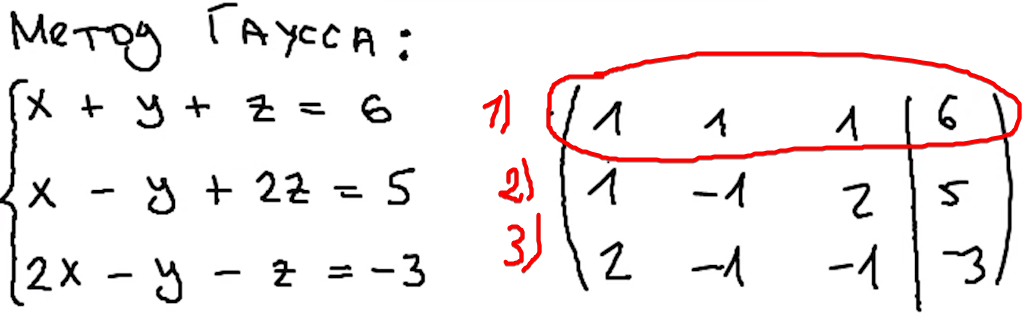 Метод Гаусса:
x + y + z = 6
x - y + 2z = 5
2x - y - z = -3
1) 1 1 1 | 6
2) 1 -1 2 | 5
3) 2 -1 -1 | -3